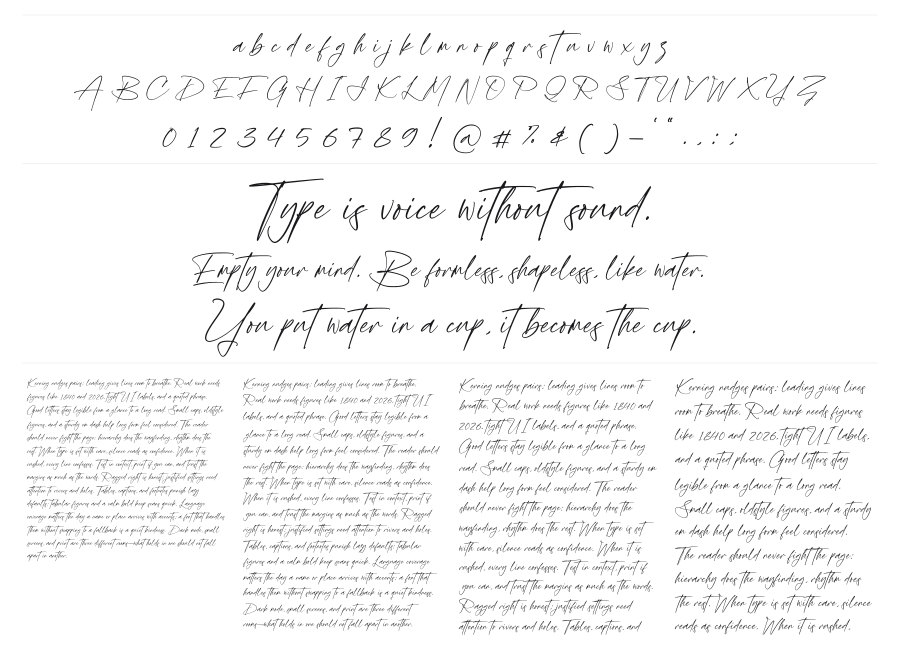 a b c d e f g h i j k l m n o p q r s t u v w x y z
A B C D E F G H I J K L M N O P Q R S T U V W X Y Z
0 1 2 3 4 5 6 7 8 9 ! @ # % & ( ) – ' " . , : ;
Type is voice without sound.
Empty your mind. Be formless, shapeless, like water.
You put water in a cup, it becomes the cup.
Kerning nudges pairs; leading gives lines room to breathe. Real work needs
figures like 1840 and 2026, tight UI labels, and a quoted phrase.
Good letters stay legible from a glance to a long read. Small caps, oldstyle
figures, and a sturdy en dash help long form feel considered. The reader
should never fight the page: hierarchy does the wayfinding, rhythm does the
rest. When type is set with care, silence reads as confidence. When it is
rushed, every line confesses. Test in context, print if you can, and trust the
margins as much as the words. Ragged right is honest; justified settings need
attention to rivers and holes. Tables, captions, and footnotes punish lazy
defaults. Tabular figures and a calm bold keep scans quick. Language
coverage matters the day a name or place arrives with accents; a font that handles
them without snapping to a fallback is a quiet kindness. Dark mode, small
screens, and print are three different rooms—what holds in one should not fall
apart in another.
Kerning nudges pairs; leading gives lines room to breathe.
Real work needs figures like 1840 and 2026, tight UI
labels, and a quoted phrase. Good letters stay legible from a
glance to a long read. Small caps, oldstyle figures, and a
sturdy en dash help long form feel considered. The reader should
never fight the page: hierarchy does the wayfinding, rhythm does
the rest. When type is set with care, silence reads as confidence.
When it is rushed, every line confesses. Test in context, print if
you can, and trust the margins as much as the words. Ragged
right is honest; justified settings need attention to rivers and holes.
Tables, captions, and footnotes punish lazy defaults. Tabular
figures and a calm bold keep scans quick. Language coverage
matters the day a name or place arrives with accents; a font that
handles them without snapping to a fallback is a quiet kindness.
Dark mode, small screens, and print are three different
rooms—what holds in one should not fall apart in another.
Kerning nudges pairs; leading gives lines room to
breathe. Real work needs figures like 1840 and
2026, tight UI labels, and a quoted phrase.
Good letters stay legible from a glance to a long
read. Small caps, oldstyle figures, and a sturdy en
dash help long form feel considered. The reader
should never fight the page: hierarchy does the
wayfinding, rhythm does the rest. When type is set
with care, silence reads as confidence. When it is
rushed, every line confesses. Test in context, print if
you can, and trust the margins as much as the words.
Ragged right is honest; justified settings need
attention to rivers and holes. Tables, captions, and
Kerning nudges pairs; leading gives lines
room to breathe. Real work needs figures
like 1840 and 2026, tight UI labels,
and a quoted phrase. Good letters stay
legible from a glance to a long read.
Small caps, oldstyle figures, and a sturdy
en dash help long form feel considered.
The reader should never fight the page:
hierarchy does the wayfinding, rhythm does
the rest. When type is set with care, silence
reads as confidence. When it is rushed,